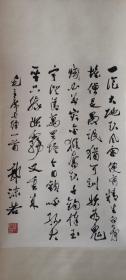 一從大地起風雷便有精生白骨
堆僧是愚氓猶可訓妖為鬼
蜮必成災金猴奮起千鈞棒玉
宇澄清萬里埃今日歡呼孫大
聖只緣妖霧又重來
毛主席七律一首
郭沫若